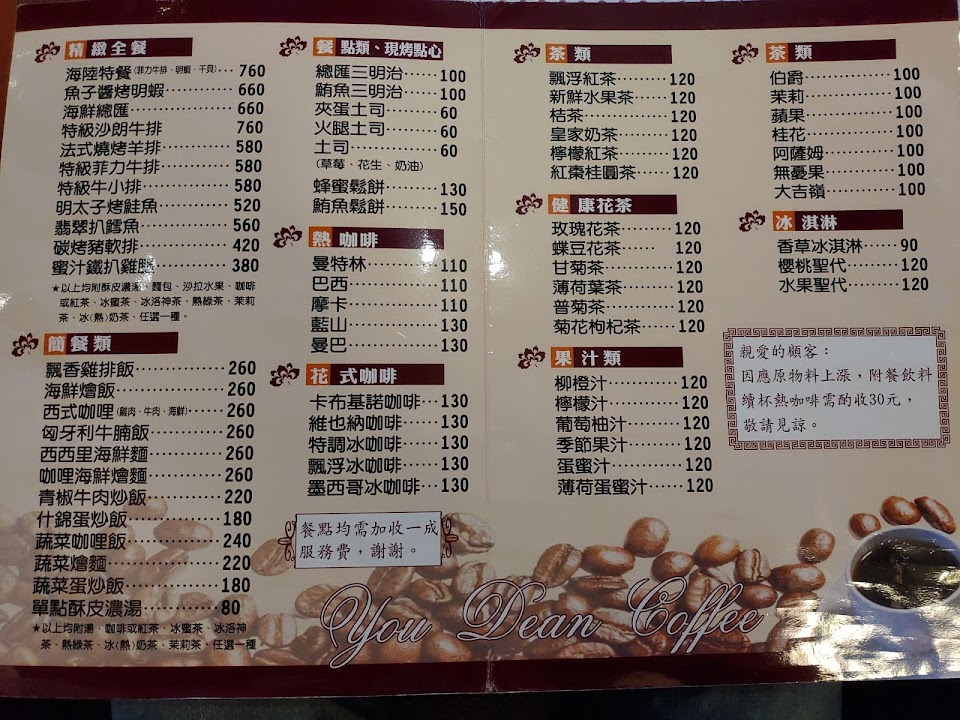 精緻全餐
海陸特餐(菲力牛排、明蝦、干貝)··· 760
魚子醬烤明蝦········ 660
海鮮總匯·············· 660
特級沙朗牛排 760
法式燒烤羊排········ 580
特級菲力牛排········ 580
特級牛小排··········· 580
明太子烤鮭魚········ 520
翡翠扒鱈魚··········· 560
碳烤豬軟排··········· 420
蜜汁鐵扒雞腿········ 380
★以上均附酥皮濃湯、麵包、沙拉水果、咖啡
或紅茶、冰蜜茶、冰洛神茶、熱綠茶、茉莉
茶、冰(熱)奶茶、任選一種。
簡餐類
飄香雞排飯··········· 260
海鮮燴飯·············· 260
西式咖哩(雞肉、牛肉、海鮮)······ 260
匈牙利牛腩飯········ 260
西西里海鮮麵········ 260
咖哩海鮮燴麵········ 260
青椒牛肉炒飯········ 220
什錦蛋炒飯··········· 180
蔬菜咖哩飯··········· 240
蔬菜燴麵·············· 220
蔬菜蛋炒飯··········· 180
單點酥皮濃湯··········· 80
★以上均附湯、咖啡或紅茶、冰蜜茶、冰洛神
茶、熱綠茶、冰(熱)奶茶、茉莉茶，任選一種。
餐點類、現烤點心
總匯三明治······ 100
鮪魚三明治······ 100
夾蛋土司········· 60
火腿土司········· 60
土司··············· 60
(草莓、花生、奶油)
蜂蜜鬆餅········· 130
鮪魚鬆餅········· 150
熱咖啡
曼特林············ 110
巴西··············· 110
摩卡··············· 110
藍山··············· 130
曼巴··············· 130
花式咖啡
卡布基諾咖啡··· 130
維也納咖啡······ 130
特調冰咖啡······ 130
飄浮冰咖啡······ 130
墨西哥冰咖啡··· 130
餐點均需加收一成
服務費，謝謝。
茶類
飄浮紅茶········· 120
新鮮水果茶······ 120
桔茶··············· 120
皇家奶茶········· 120
檸檬紅茶········· 120
紅棗桂圓茶······ 120
健康花茶
玫瑰花茶········· 120
蝶豆花茶······ 120
甘菊茶············ 120
薄荷葉茶········· 120
普菊茶············ 120
菊花枸杞茶······ 120
果汁類
柳橙汁············ 120
檸檬汁············ 120
葡萄柚汁········· 120
季節果汁········· 120
蛋蜜汁············ 120
薄荷蛋蜜汁······ 120
茶類
伯爵··············· 100
茉莉··············· 100
蘋果··············· 100
桂花··············· 100
阿薩姆············ 100
無憂果············ 100
大吉嶺············ 100
冰淇淋
香草冰淇淋······ 90
櫻桃聖代········· 120
水果聖代········· 120
親愛的顧客：
因應原物料上漲，附餐飲料
續杯熱咖啡需酌收30元，
敬請見諒。
You Dean Coffee